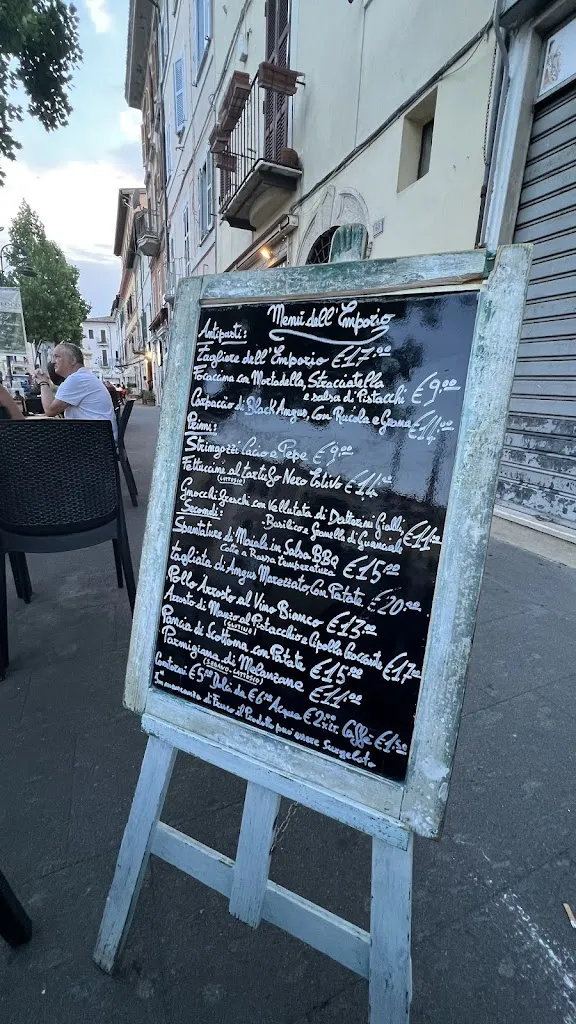 Menù dell'Emporio
Antipasti:
Tagliere dell'Emporio €17.00
Focaccina con Mortadella, Stracciatella
e salsa di Pistacchi €9.00
Carpaccio di Black Angus, Con Rucola e Grana €14.00
Primi:
Stringozzi Cacio e Pepe €9.00
Fettuccini al tartufo Nero Estivo €14.00
Gnocchi freschi con Vellutata di Datterini Gialli,
Basilico e Granella di Guanciale €11.00
Secondi:
Spuntature di Maiale in Salsa BBQ €15.00
Cotte a Bassa temperatura
Tagliata di Angus Marezzato Con Patate €20.00
Pollo Arrosto al Vino Bianco €13.00
(GLUTINE)
Arrosto di Manzo al Pistacchio e Cipolla Croccante €17.00
Pancia di Scottona con Patate €15.00
Parmigiana di Melanzane €11.00
(SEDANO-LATTOSIO)
Contorni €5.00 Dolci da €6.00 Acqua €2.00 Caffè €1.50
In mancanza di Fresco il Prodotto può essere surgelato